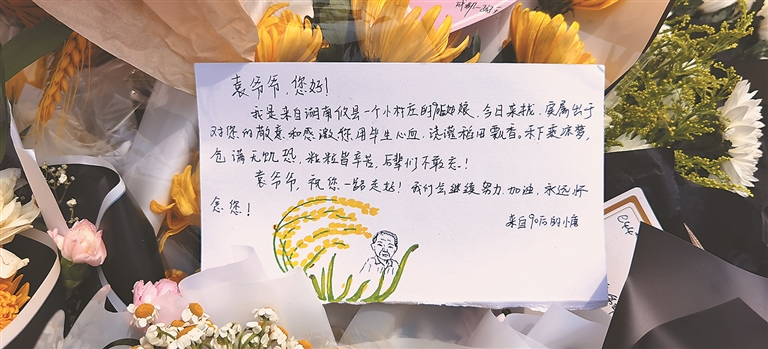 袁爷爷，您好！
我是来自湖南攸县一个小村庄的姑娘，今日来扰，实属出于
对您的敬意和感激，您用毕生心血，浇灌稻田飘香。禾下乘凉梦，
仓满无饥恐，粒粒皆辛苦，后辈们不敢忘！
袁爷爷，祝您一路走好！我们会继续努力，加油，永远怀
念您！
来自90后的小唐